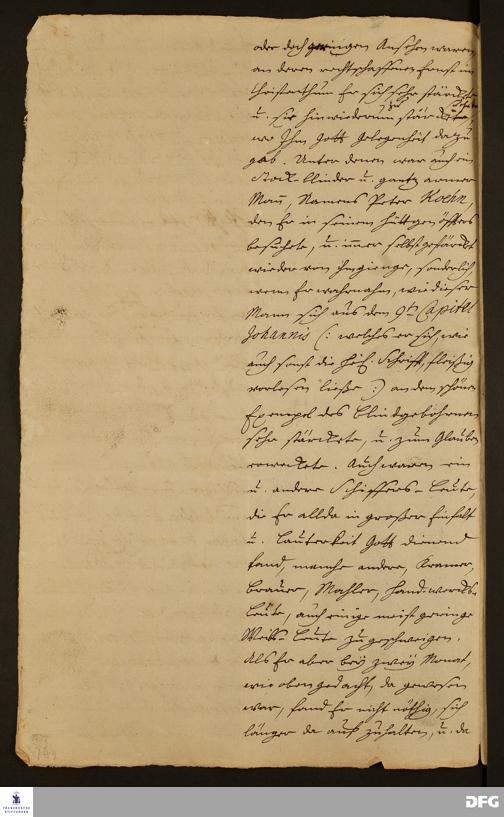 oder doch geringen Ansehen waren,
an deren rechtschaffenen Ernst im
Christenthum Er sich sehr stärckte
u. sie hinwiederum zu stärcken suchte,
wo Ihm Gott Gelegenheit dazu
gab. Unter denen war auch ein
Stock-blinder u. gantz armer
Mañ, Namens Peter Koehn,
den Er in seinem Hüttgen öffters
besuchete, u. im̃er selbst gestärckt
wieder von ihm gienge, sonderlich,
wenn Er wahrnahm, wie dieser
Mann sich aus dem 9ten Capitel
Johannis (: welches er sich, wie
auch sonst die heil. Schrifft, fleißig
vorlesen ließe :) an dem schönen
Exempel des Blindgebohrnen
sehr stärckete, u. zum Glauben
erweckete. Auch waren ein
u. andere Schiffers-Leute,
die Er allda in großer Einfalt
u. Lauterkeit Gott dienend
fand, manche andere, Kramer,
Brauer, Mahler, Hand-wercks-
Leute, auch einige meist geringe
Weibs-Leute zu geschweigen.
Als Er aber bey zwey Monat,
wie oben gedacht, da gewesen
war, fand Er nicht nöthig, sich
länger da auf zuhalten, u. da
FRANCKESCHE
STIFTUNGEN
DFG